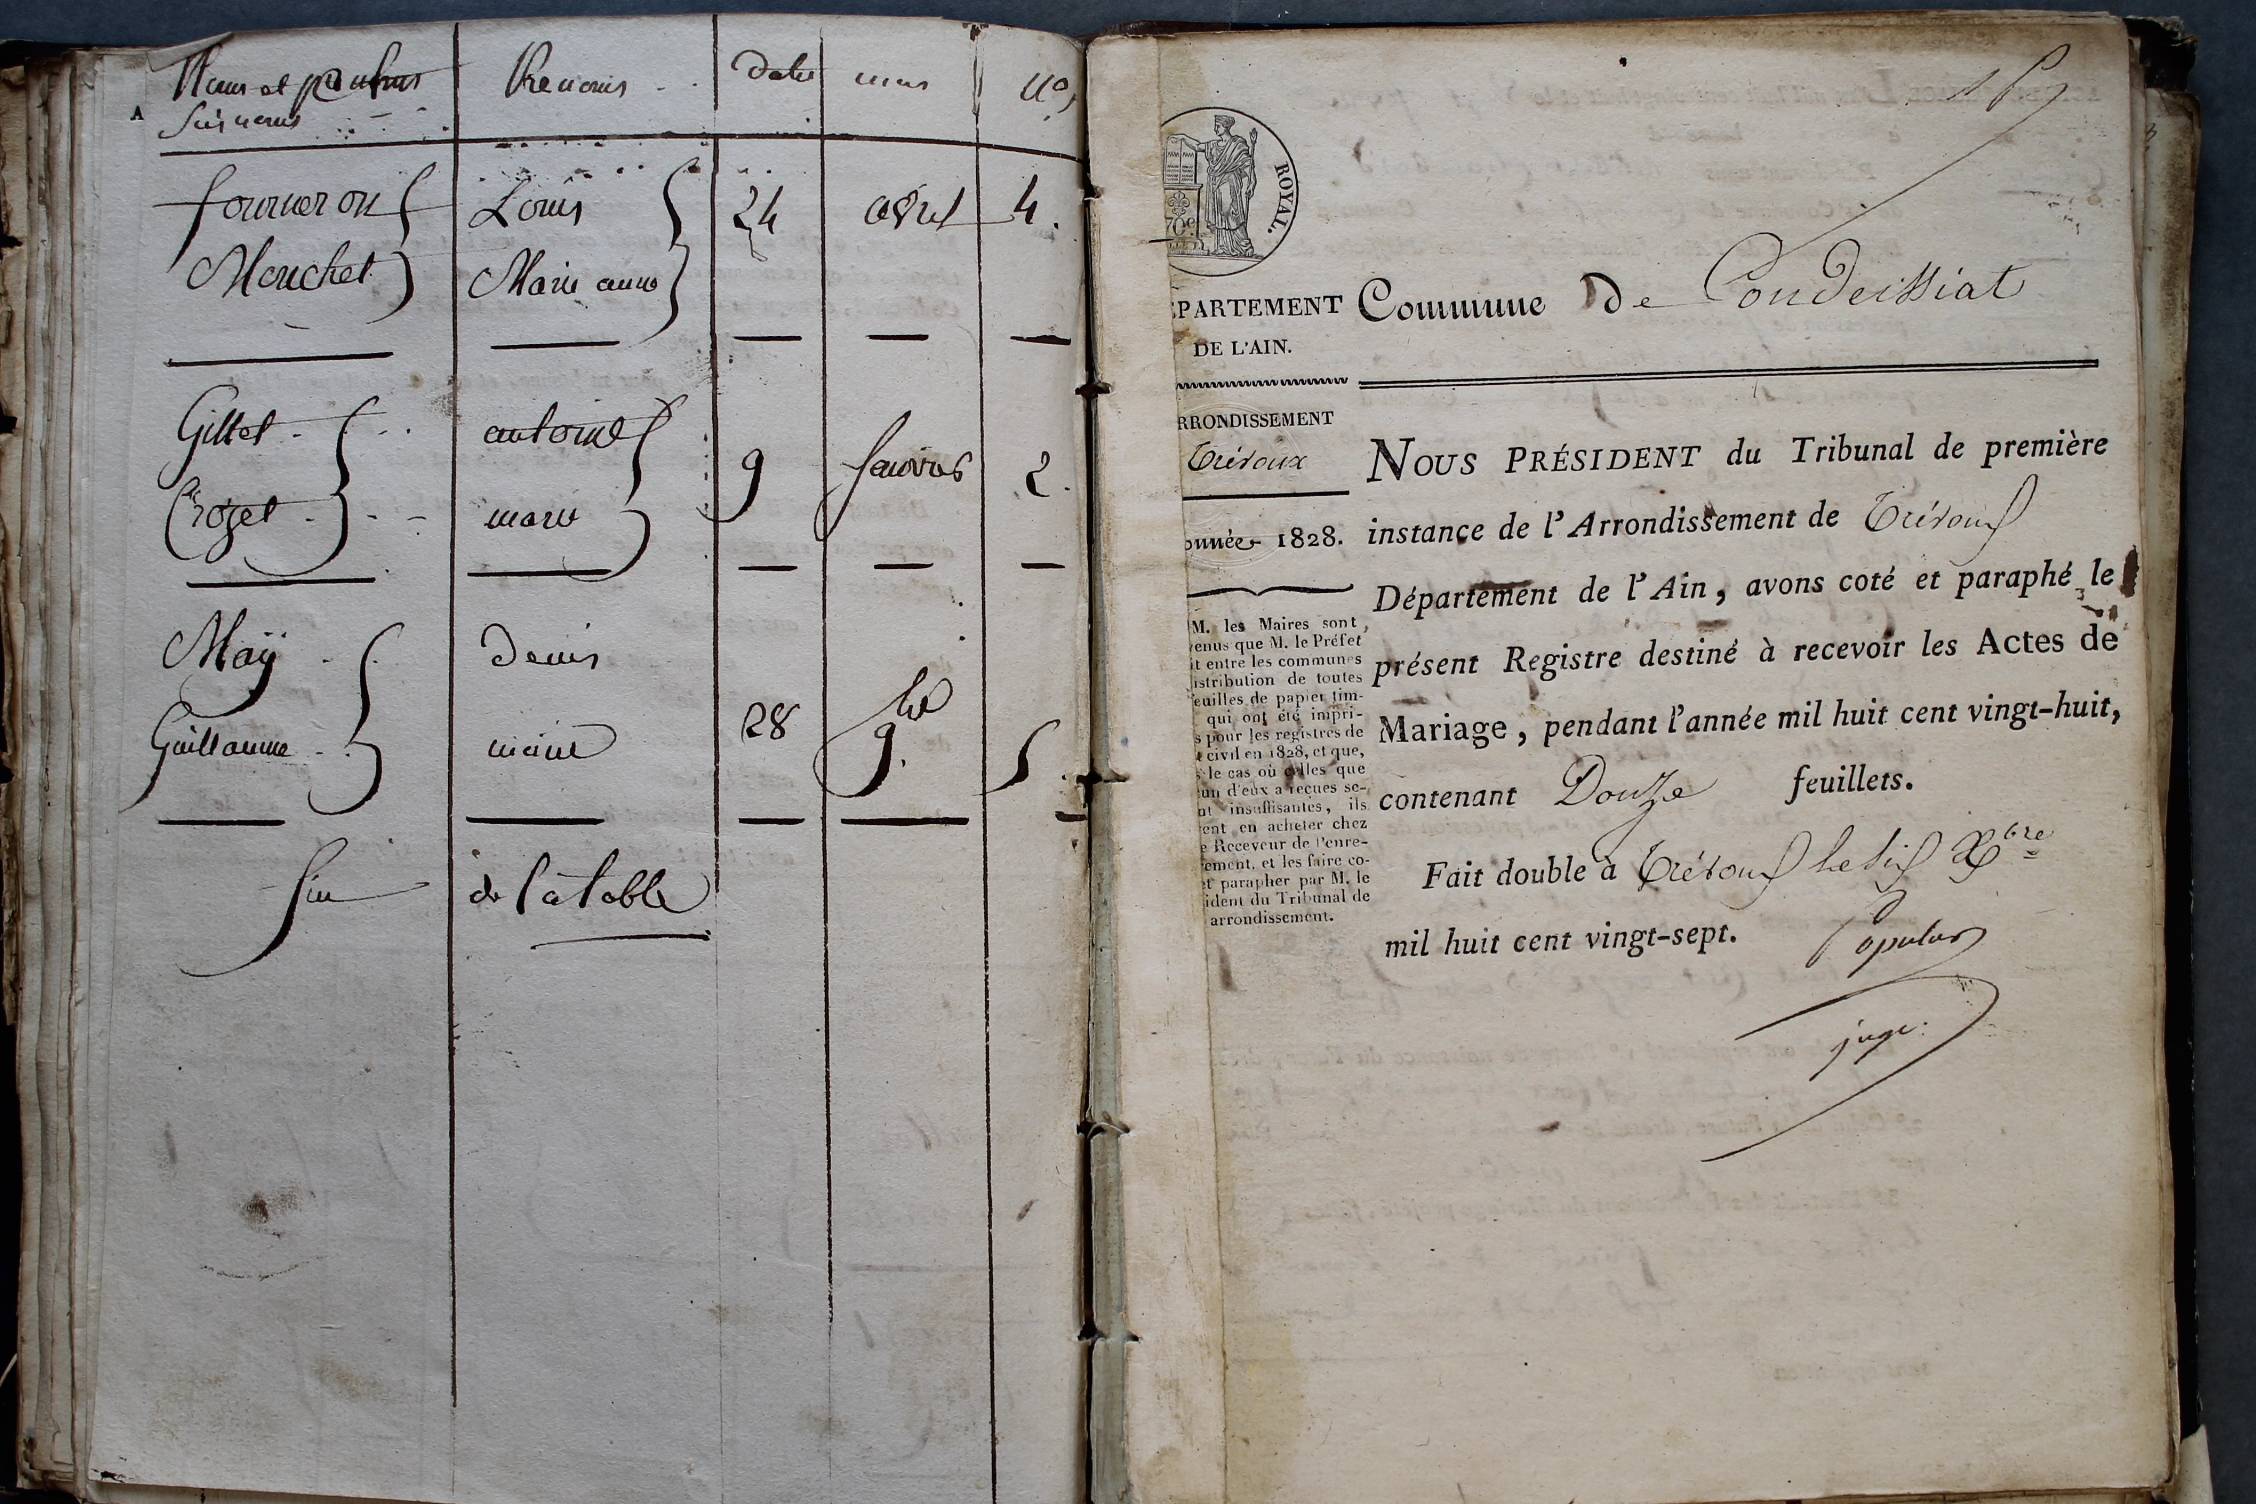 Noms et
surnoms
Prenoms
date
mois
nos
A
fourneron
Louis
24
avril
4.
Mouchet
Marie anne
Gillet
antoine
9
fevrier
2.
Crozet
marie
Maÿ
denis
28
9bre
5
Guillaume
marie
fin de la table
1
ROYAL.
70c
ÉPARTEMENT
DE L'AIN.
Commune De Condeissiat
RRONDISSEMENT
Trévoux
année 1828.
M. les Maires sont
venus que M. le Préfet
it entre les communes
istribution de toutes
euilles de papier tim-
qui ont été impri-
s pour les registres de
civil en 1828, et que,
le cas où celles que
un d'eux a reçues se-
nt insuffisantes, ils
ent en acheter chez
e Receveur de l'enre-
ement, et les faire co-
et parapher par M. le
ident du Tribunal de
arrondissement.
NOUS PRÉSIDENT du Tribunal de première
instance de l'Arrondissement de Trévoux
Département de l'Ain, avons coté et paraphé le
présent Registre destiné à recevoir les Actes de
Mariage, pendant l'année mil huit cent vingt-huit,
contenant Douze feuillets.
Fait double à Trévoux le six Xbre
mil huit cent vingt-sept.
Populus
juge.